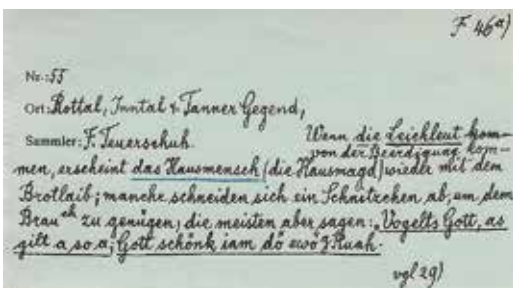 F 46a)
Nr.: 55
Ort: Rottal, Inntal & Tanner Gegend,
Sammler: F. Teuerschuh. Wenn die Leichleut kom-
von der Beerdigung kom-
men, erscheint das Hausmensch (die Hausmagd) wieder mit dem
Brotlaib; manche schneiden sich ein Schnitzchen ab, um dem
Brauch zu genügen, die meisten aber sagen: „Vogelts Gott, as
gilt a so a; Gott schönk iam dö ewö g Ruah.
vgl 29)